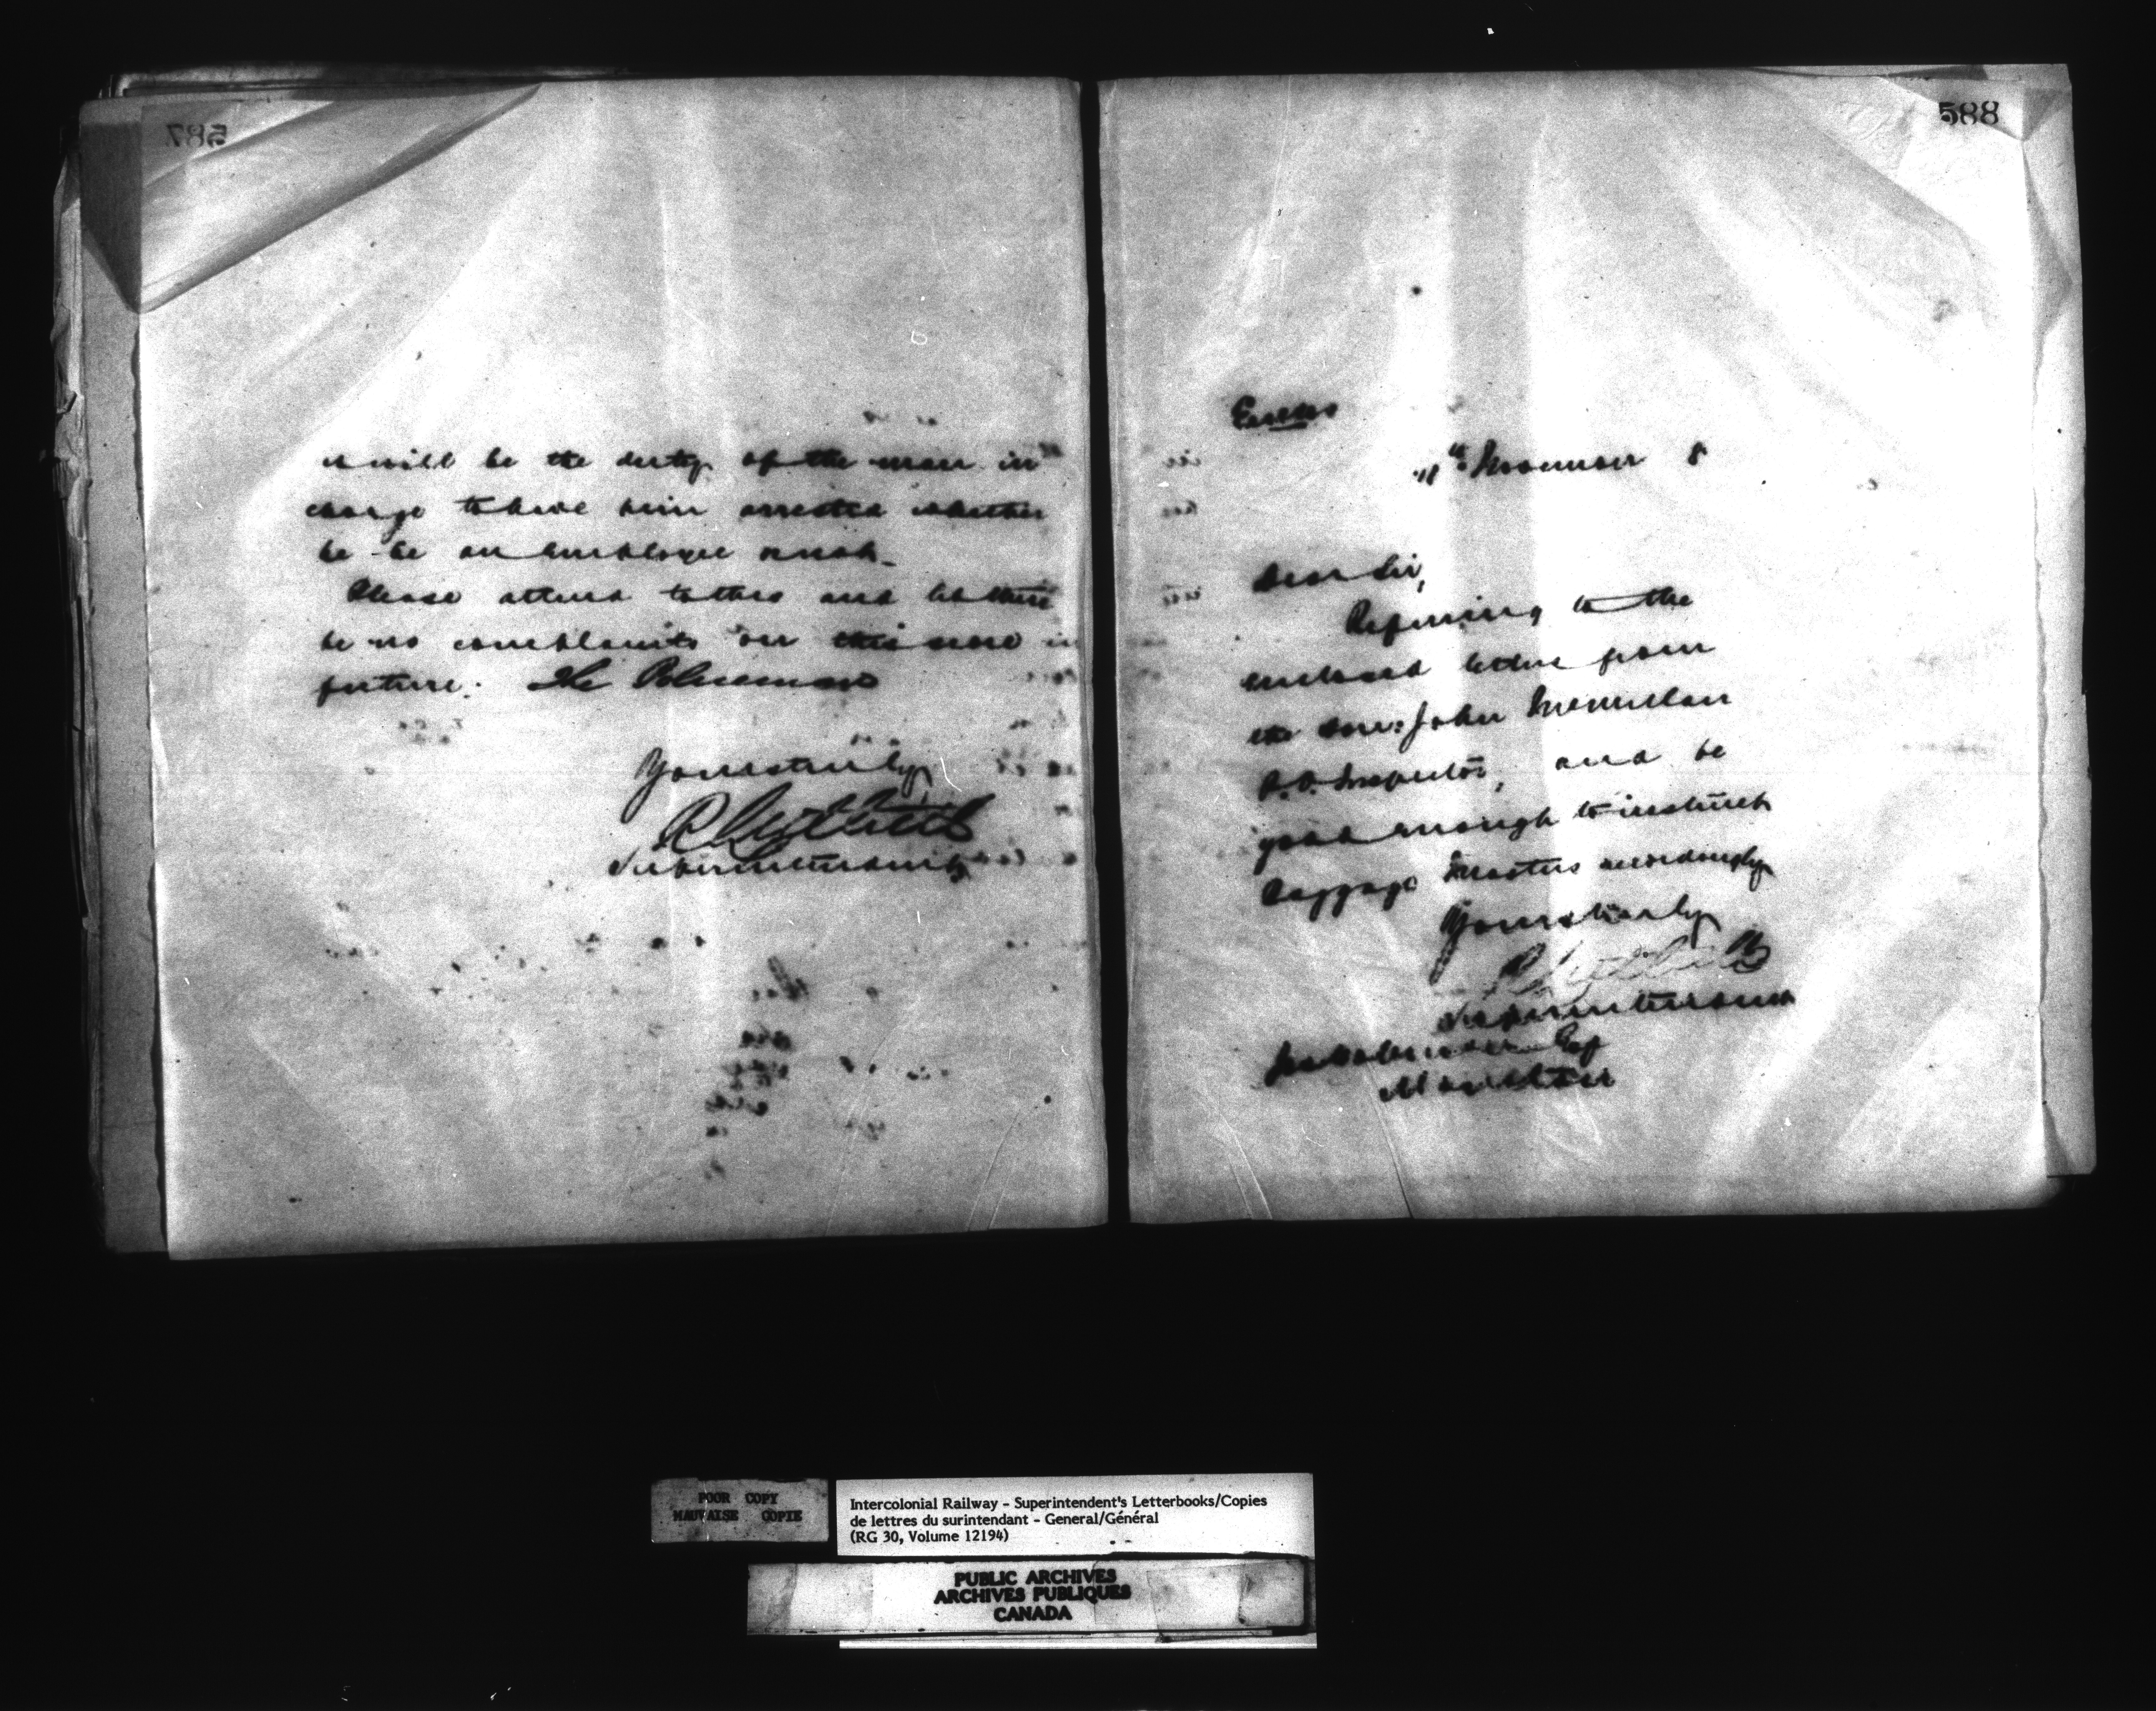 587
it will be the duty of the man in
charge to have him arrested whether
he be an employee or not.
Please attend to this and let there
be no complaints on this score in
future. The Policeman
Yours truly,
Superintendent
588
Enclos
11th November 8
Dear Sir,
Referring to the
enclosed letter from
the Hon. John McMillan
P.O. Inspector, and be
good enough to instruct
Baggage Masters accordingly
Yours truly
Superintendent
Esq
Moncton
POOR COPY
MAUVAISE COPIE
Intercolonial Railway - Superintendent's Letterbooks/Copies
de lettres du surintendant - General/Général
(RG 30, Volume 12194)
PUBLIC ARCHIVES
ARCHIVES PUBLIQUES
CANADA